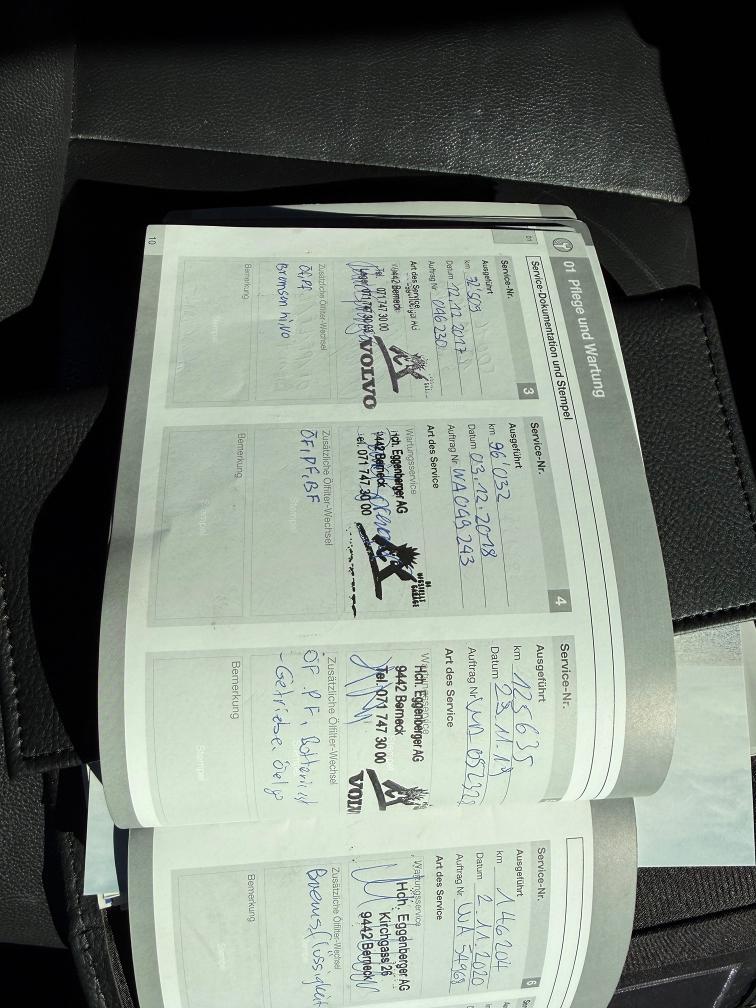 01 Pflege und Wartung
01
Service-Dokumentation und Stempel
Service-Nr. 3
Ausgeführt
km
Datum 12.12.2017
Auftrag Nr. 046230
Art des Service
9442 Berneck
Tel. 071 747 30 00
VOLVO
Zusätzliche Ölfilter-Wechsel
Bemerkung
10
Service-Nr. 4
Ausgeführt
km 96'032
Datum 03.12.2018
Auftrag Nr WA049243
Art des Service
Wartungsservice
Hch. Eggenberger AG
9442 Berneck
Tel. 071 747 30 00
Zusätzliche Ölfilter-Wechsel
ÖF, PF, BF
Stempel
Bemerkung
Stempel
Service-Nr.
Ausgeführt
km 125635
Datum 29.11.19
Auftrag Nr
Art des Service
Wartungsservice
Hch. Eggenberger AG
9442 Berneck
Tel. 071 747 30 00
Zusätzliche Ölfilter-Wechsel
ÖF, PF,
- Getriebe
Bemerkung
Stempel
Service-Nr. 6
Ausgeführt
km 146204
Datum 2.11.2020
Auftrag Nr WA 54968
Art des Service
Wartungsservice
Hch. Eggenberger AG
Kirchgass 26
9442 Berneck
Zusätzliche Ölfilter-Wechsel
Bremsflüssigkeit
Bemerkung